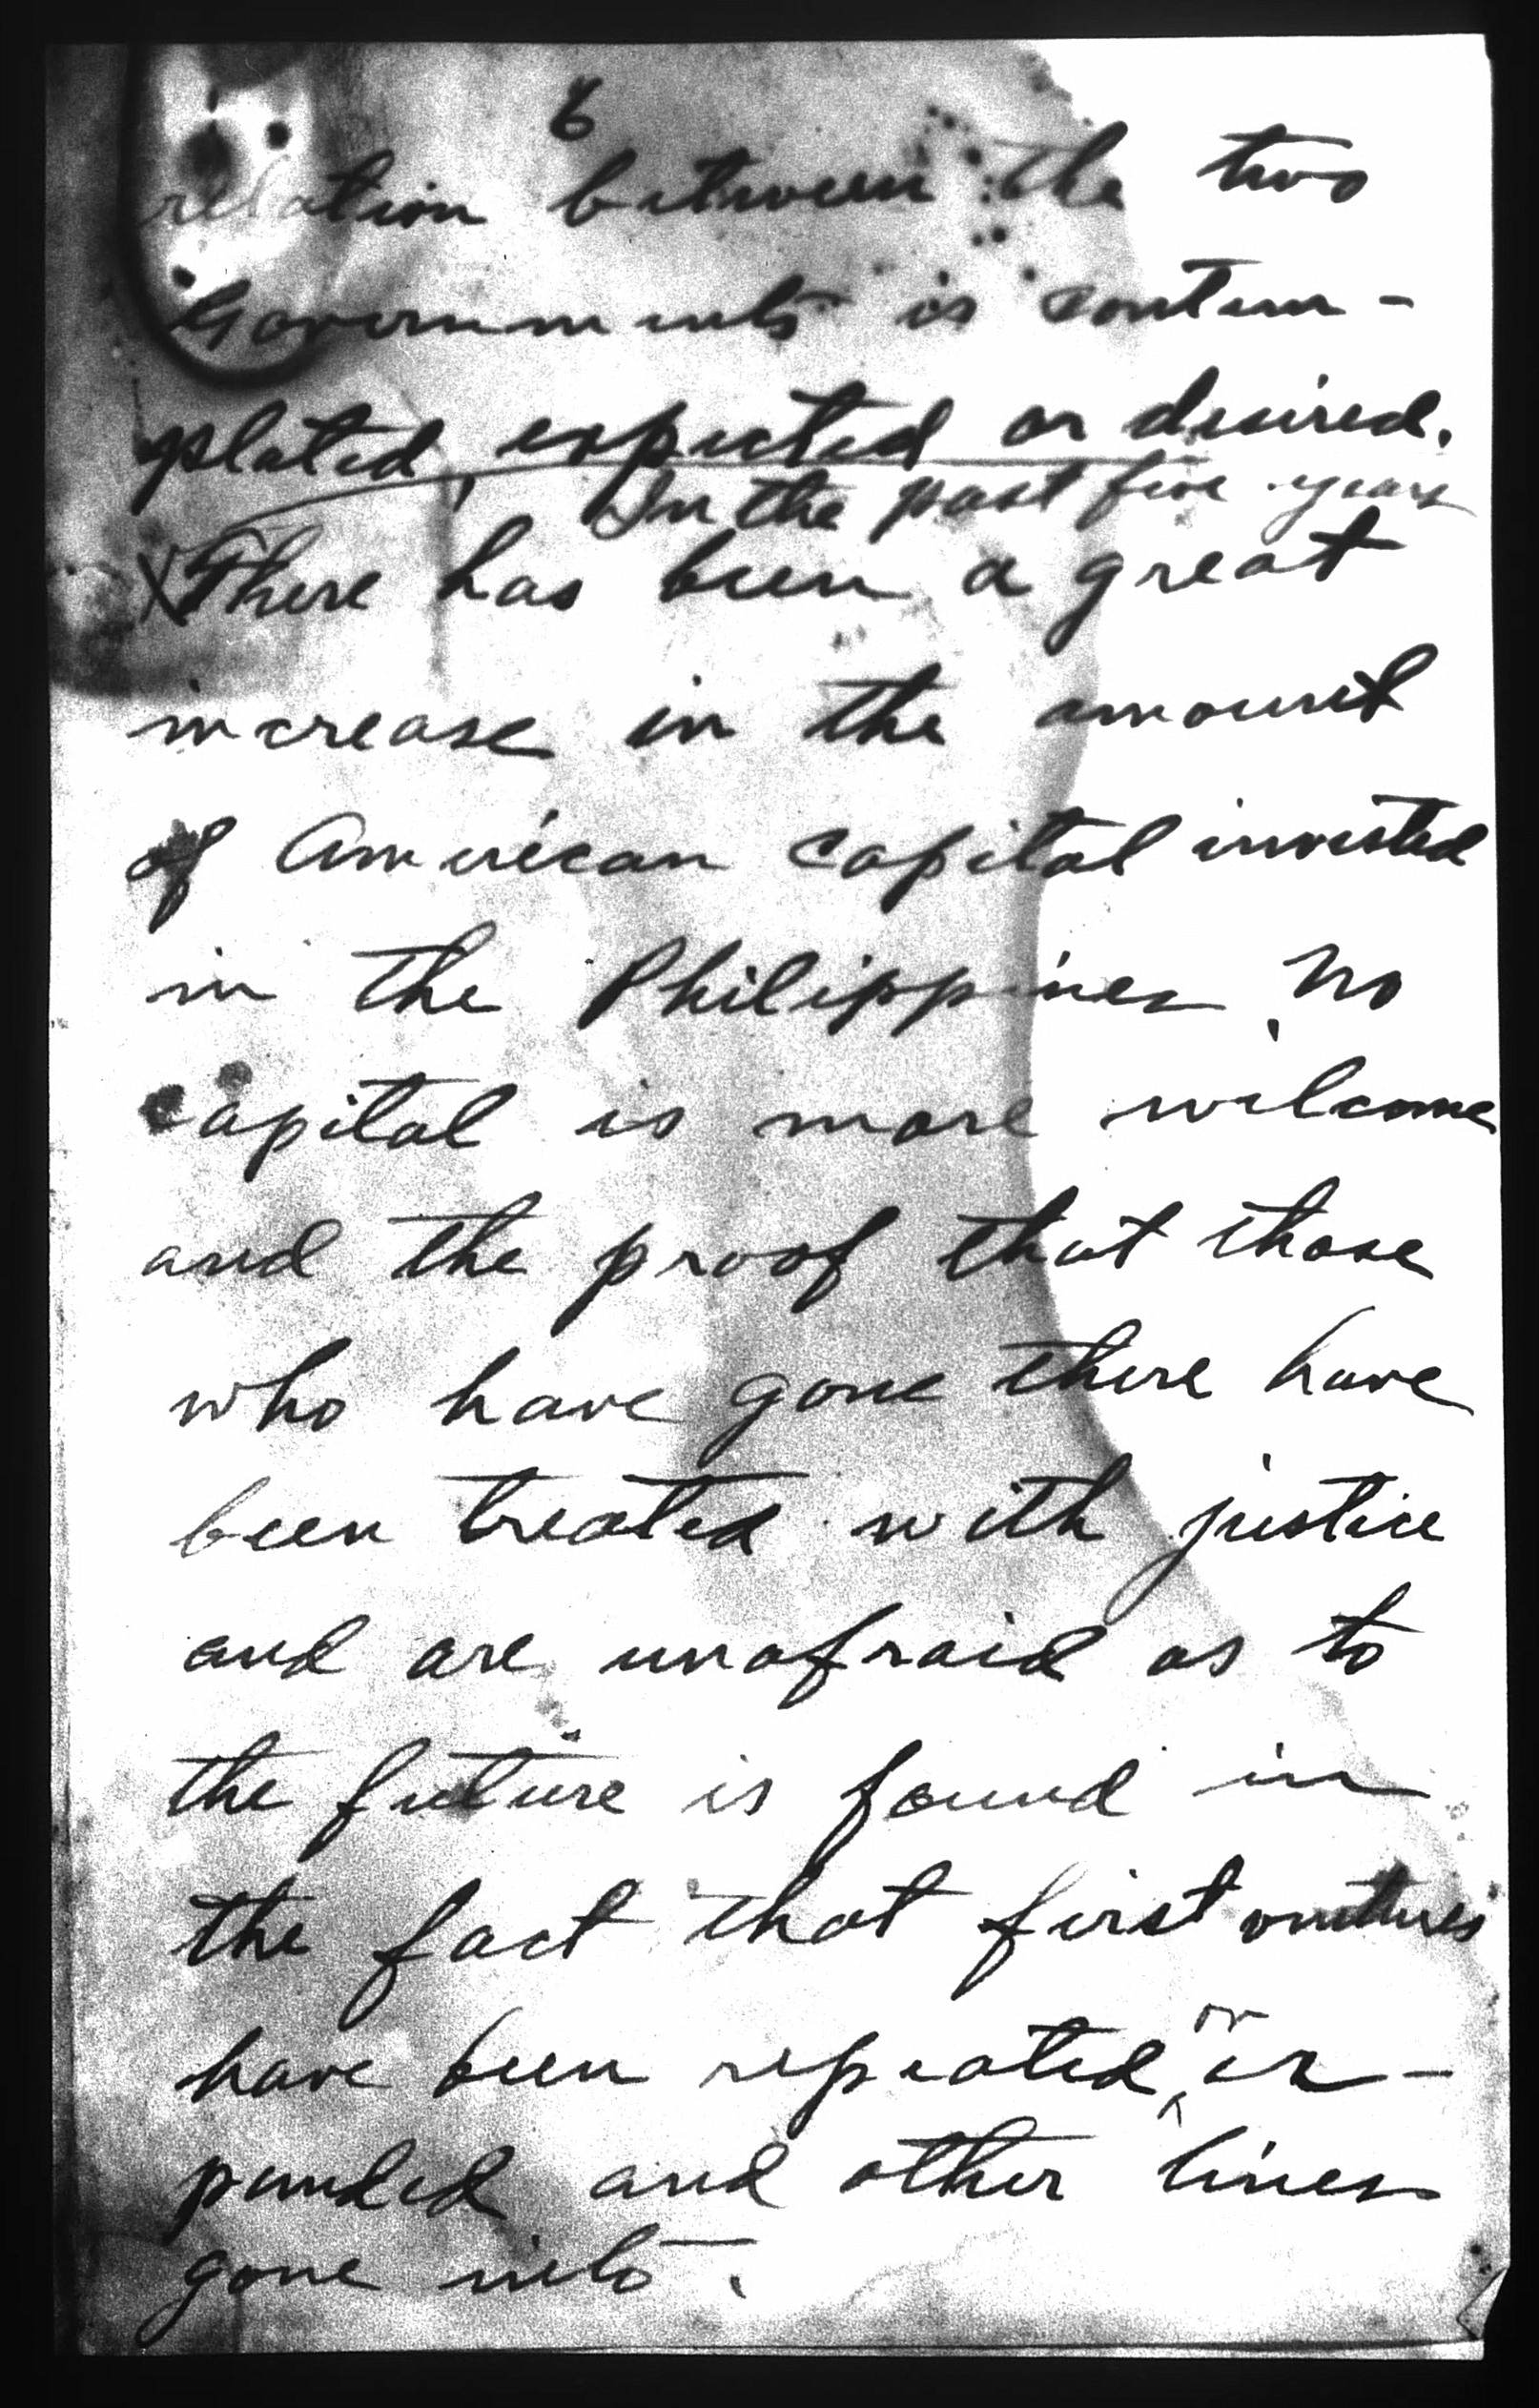 6
relation between the two
Governments is contem-
plated, expected or desired.
In the past five years
There has been a great
increase in the amount
of American capital invested
in the Philippines. No
capital is more welcome
and the proof that those
who have gone there have
been treated with justice
and are unafraid as to
the future is found in
the fact that first ventures
or
have been repeated, ex-
panded and other lines
gone into.